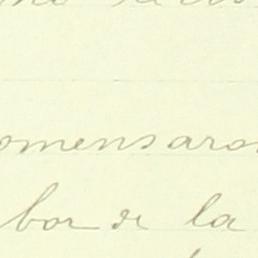 omensaron
bor de la